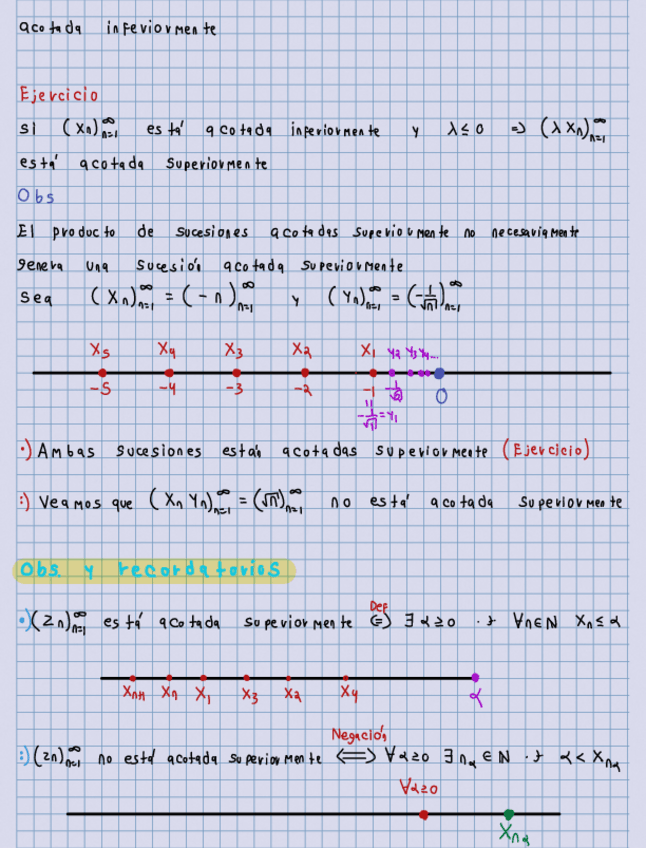 acotada inferiormente
Ejercicio
Si (Xn)_{n=1}^∞ está acotada inferiormente y λ≤0 => (λXn)_{n=1}^∞
está acotada superiormente
Obs
El producto de sucesiones acotadas superiormente no necesariamente
genera una sucesión acotada superiormente
Sea (Xn)_{n=1}^∞ = (-n)_{n=1}^∞ y (Yn)_{n=1}^∞ = (-1/√n)_{n=1}^∞
X5 X4 X3 X2 X1 Y2 Y3 Y4 ...
-5 -4 -3 -2 -1 -1/√2 0
-1/√1 = Y1
•) Ambas sucesiones están acotadas superiormente (Ejercicio)
:) Veamos que (Xn Yn)_{n=1}^∞ = (√n)_{n=1}^∞ no está acotada superiormente
Obs. y recordatorios
Def
•) (Zn)_{n=1}^∞ está acotada superiormente <=> ∃ α≥0 ·Ͽ· ∀n∈N Xn ≤ α
Xn+1 Xn X1 X3 X2 X4 α
Negación
:) (Zn)_{n=1}^∞ no está acotada superiormente <=> ∀α≥0 ∃ nα ∈ N ·Ͽ· α < Xnα
∀α≥0
Xnα